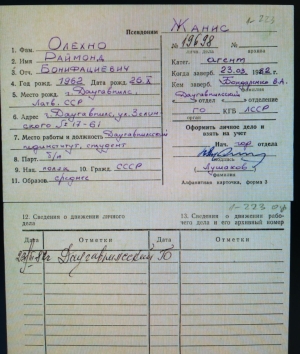 1-223
Псевдоним Жанис
1. Фам. Олехно
№ 19698
лич. дела архива
2. Имя Раймонд
3. Отч. Бонифациевич
Катег. агент
4. Год рожд. 1962 Дата
Когда заверб. 23.03
5. Место рожд. г. Даугавпилс,
Латв. ССР
Кем заверб. Бондаренко В.А.
Даугавпилсский
отдел
6. Адрес г. Даугавпилс, ул.
-61
ГО КГБ ЛССР
Оформить личное дело и
взять на учет
7. Место работы и должность Даугавпилсский
пединститут, студент
Нач. гор. отдела
8. Парт. б/п
подпись
9. Нац. поляк 10. Гражд. СССР
Лушаков
11. Образов. среднее
Алфавитная карточка, форма 3
1-223 об
12. Сведения о движении личного
дела
13. Сведения о движении рабо-
чего дела и его архивный номер
Дата Отметки Дата Отметки
Даугавпилсский ГО